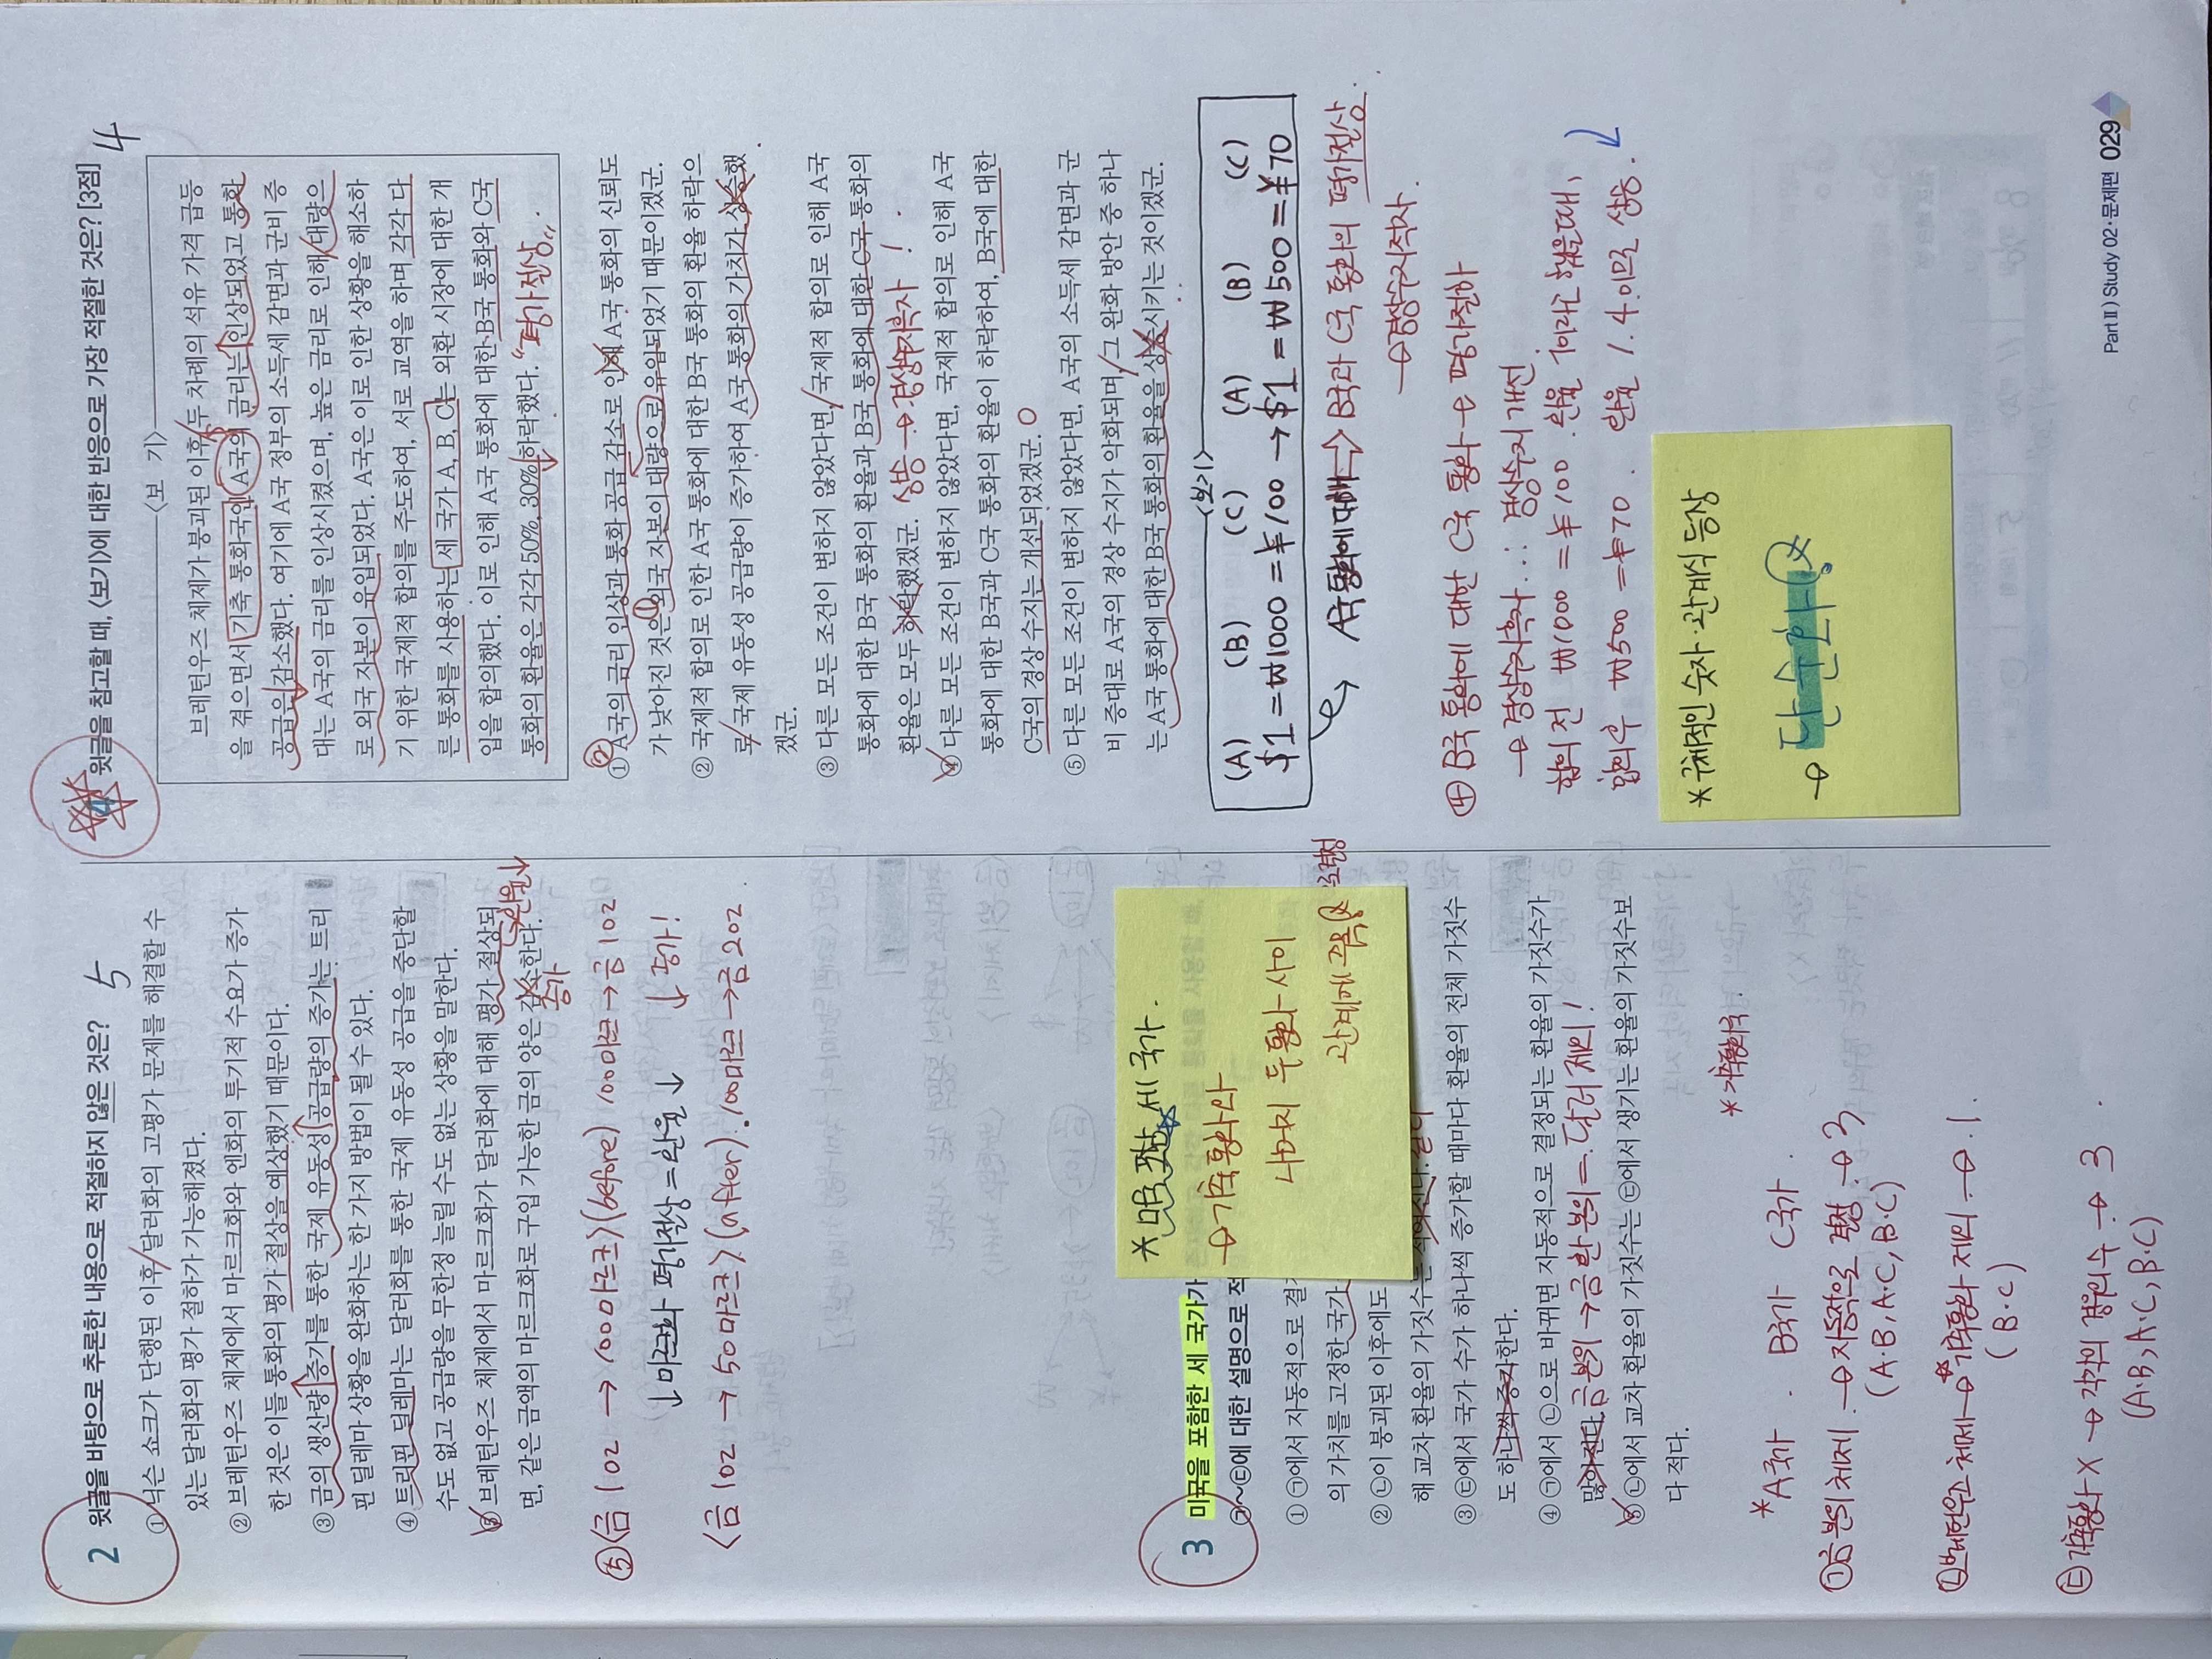 2 윗글을 바탕으로 추론한 내용으로 적절하지 않은 것은? 5
① 닉슨 쇼크가 단행된 이후 달러화의 고평가 문제를 해결할 수
있는 달러화의 평가 절하가 가능해졌다.
② 브레턴우즈 체제에서 마르크화와 엔화의 투기적 수요가 증가
한 것은 이들 통화의 평가 절상을 예상했기 때문이다.
③ 금의 생산량 증가를 통한 국제 유동성 공급량의 증가는 트리
핀 딜레마 상황을 완화하는 한 가지 방법이 될 수 있다.
④ 트리핀 딜레마는 달러화를 통한 국제 유동성 공급을 중단할
수도 없고 공급량을 무한정 늘릴 수도 없는 상황을 말한다.
⑤ 브레턴우즈 체제에서 마르크화가 달러화에 대해 평가 절상되
면, 같은 금액의 마르크화로 구입 가능한 금의 양은 감소한다.
환율↓
증가
⑤ <금 1oz → 100마르크> (before) 100마르크 → 금 1oz
↓ 마르크화 평가절상 = 환율↓ ↓ 증가!
<금 1oz → 50마르크> (after). 100마르크 → 금 2oz
3 미국을 포함한 세 국가가
㉠~㉢에 대한 설명으로 적
* 미국 포함 세 국가.
→ 기축통화와
나머지 두 통화 사이
관계에 주목
① ㉠에서 자동적으로 결
의 가치를 고정한 국가
② ㉡이 붕괴된 이후에도
해 교차 환율의 가짓수는 적어진다.
③ ㉢에서 국가 수가 하나씩 증가할 때마다 환율의 전체 가짓수
도 하나씩 증가한다.
④ ㉠에서 ㉡으로 바뀌면 자동적으로 결정되는 환율의 가짓수가
많아진다. 금본위 → 금환본위 = 달러 제외!
⑤ ㉡에서 교차 환율의 가짓수는 ㉢에서 생기는 환율의 가짓수보
다 적다.
* 기축통화국?
* A국가 . B국가 C국가 .
㉠ 금본위체제 → 자동적으로 결정 → 3
(A·B, A·C, B·C)
㉡ 브레턴우즈 체제 → 기축통화 제외 → 1.
(B·C)
㉢ 기축통화 X → 각각의 경우의 수 → 3
(A·B, A·C, B·C)
4 윗글을 참고할 때, <보기>에 대한 반응으로 가장 적절한 것은? [3점] 4
<보 기>
브레턴우즈 체제가 붕괴된 이후 두 차례의 석유 가격 급등
을 겪으면서 기축 통화국인 A국의 금리는 인상되었고 통화
공급은 감소했다. 여기에 A국 정부의 소득세 감면과 군비 증
대는 A국의 금리를 인상시켰으며, 높은 금리로 인해 대량으
로 외국 자본이 유입되었다. A국은 이로 인한 상황을 해소하
기 위한 국제적 합의를 주도하여, 서로 교역을 하며 각각 다
른 통화를 사용하는 세 국가 A, B, C는 외환 시장에 대한 개
입을 합의했다. 이로 인해 A국 통화에 대한 B국 통화와 C국
통화의 환율은 각각 50%, 30% 하락했다. "평가절상"
① A국의 금리 인상과 통화 공급 감소로 인해 A국 통화의 신뢰도
가 낮아진 것은 외국 자본의 대량으로 유입되었기 때문이겠군.
② 국제적 합의로 인한 A국 통화에 대한 B국 통화의 환율 하락으
로 국제 유동성 공급량이 증가하여 A국 통화의 가치가 상승했
겠군.
③ 다른 모든 조건이 변하지 않았다면, 국제적 합의로 인해 A국
통화에 대한 B국 통화의 환율과 B국 통화에 대한 C국 통화의
환율은 모두 하락했겠군. 상승 → 경상수지흑자!
④ 다른 모든 조건이 변하지 않았다면, 국제적 합의로 인해 A국
통화에 대한 B국과 C국 통화의 환율이 하락하여, B국에 대한
C국의 경상 수지는 개선되었겠군. O
⑤ 다른 모든 조건이 변하지 않았다면, A국의 소득세 감면과 군
비 증대로 A국의 경상 수지가 악화되며, 그 완화 방안 중 하나
는 A국 통화에 대한 B국 통화의 환율을 상승시키는 것이겠군.
<보기>
(A) (B) (C) (A) (B) (C)
$1 = ₩1000 = ¥100 → $1 = ₩500 = ¥70
A국 통화에 대해 ⇒ B국과 C국 통화의 평가절상.
→ 경상수지적자.
④ B국 통화에 대한 C국 통화 → 평가절하
→ 경상수지흑자 ∴ 경상수지 개선.
합의 전 ₩1000 = ¥100 . 환율 1이라고 했을때,
합의 후 ₩500 = ¥70 . 환율 1.4 이므로 상승.
* 구체적인 숫자·관계식 등장
→ 단순환산
Part II | Study 02 · 문제편 029